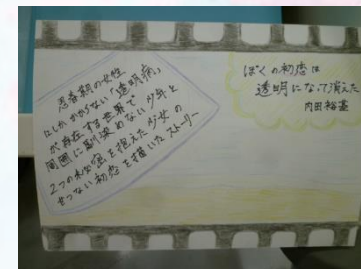 思春期の女性
にしかかからない「透明病」
が存在する世界で、
周囲に馴染めない少年と
2つの秘密を抱えた少女の
せつない初恋を描いたストーリー
ぼくの初恋は
透明になって消えた
内田裕基